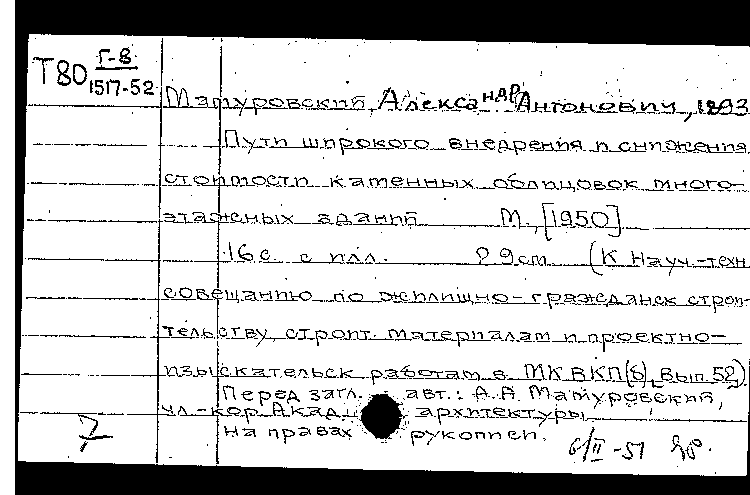 Т80 Г-8
1517-52
Матуровский, Александр Антонович, 1893
Пути широкого внедрения и снижения
стоимости каменных облицовок много-
этажных зданий М., [1950]
16 с. с илл. 29 см. (К Науч.-техн
совещанию по жилищно-гражданск строи-
тельству, строит. материалам и проектно-
изыскательск работам в МК ВКП(б), Вып. 52)
Перед загл. авт.: А.А. Матуровский,
чл.-кор. Акад. архитектуры
На правах рукописи.
6/II-51